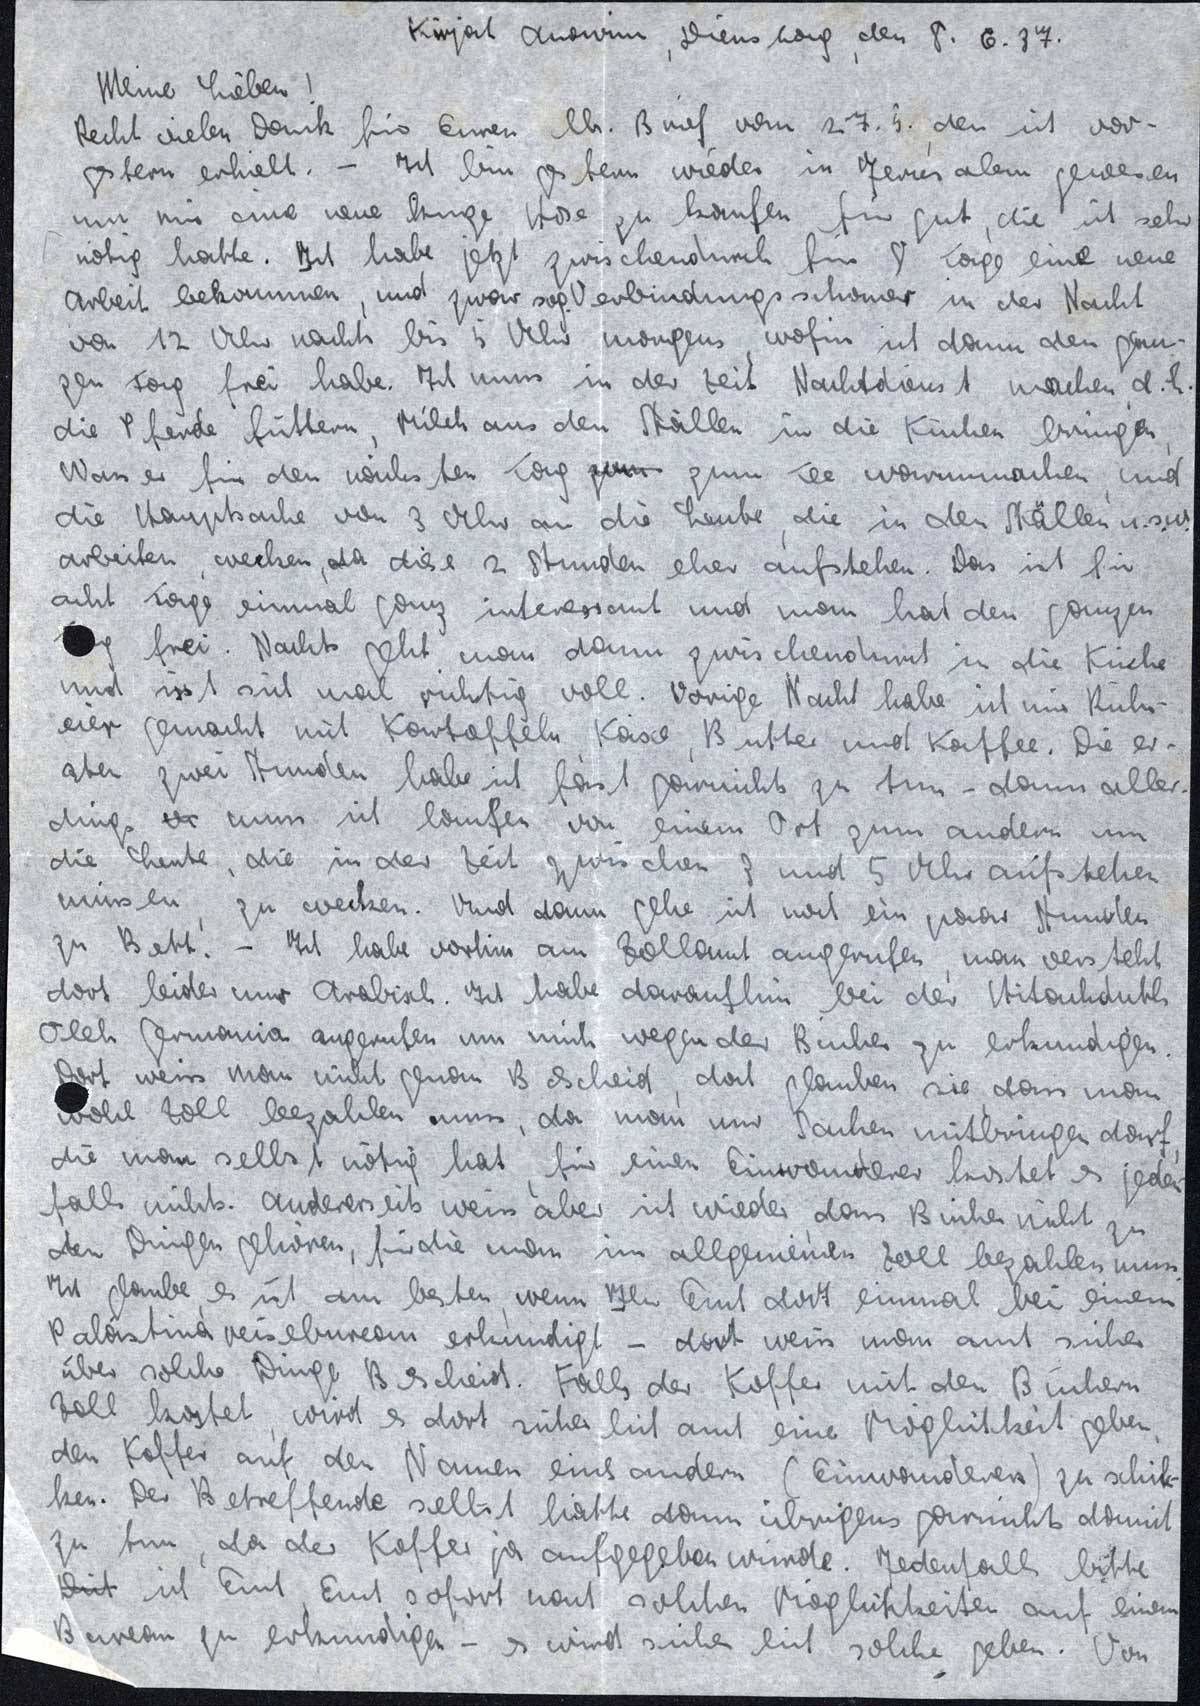 Kirjat Anavim, Dienstag, den 8. 6. 37.
Meine Lieben!
Recht vielen Dank für Euren lb. Brief vom 27.5. den ich vor-
gestern erhielt. – Ich bin gestern wieder in Jerusalem gewesen
um mir eine neue lange Hose zu kaufen für gut, die ich sehr
nötig hatte. Ich habe jetzt zwischendurch für 8 Tage eine neue
Arbeit bekommen, und zwar sog. Verbindungsschomer in der Nacht
von 12 Uhr nachts bis 5 Uhr morgens, wofür ich dann den gan-
zen Tag frei habe. Ich muss in der Zeit Nachtdienst machen, d.h.
die Pferde füttern, Milch aus den Ställen in die Küchen bringen,
Wasser für den nächsten Tag zum Tee warmmachen, und
die Hauptsache von 3 Uhr an die Leute, die in den Ställen u.s.w.
arbeiten, wecken, da diese 2 Stunden eher aufstehen. Das ist für
acht Tage einmal ganz interessant und man hat den ganzen
Tag frei. Nachts geht man dann zwischendurch in die Küche
und isst sich mal richtig voll. Vorige Nacht habe ich mir Rühr-
eier gemacht mit Kartoffeln, Käse, Butter und Kaffee. Die er-
sten zwei Stunden habe ich fast garnichts zu tun – dann aller-
dings muss ich laufen von einem Ort zum andern um
die Leute, die in der Zeit zwischen 3 und 5 Uhr aufstehen
müssen, zu wecken. Und dann gehe ich noch ein paar Stunden
zu Bett. – Ich habe vorhin am Zollamt angerufen, man versteht
dort leider nur Arabisch. Ich habe daraufhin bei der Hitachduth
Oleh Germania angerufen um mich wegen der Bücher zu erkundigen.
Dort weiss man nicht genau Bescheid, dort glauben sie, dass man
wohl Zoll bezahlen muss, da man nur Sachen mitbringen darf,
die man selbst nötig hat, für einen Einwanderer kostet es jeden-
falls nichts. Andererseits weiss aber ich wieder, dass Bücher nicht zu
den Dingen gehören, für die man im allgemeinen Zoll bezahlen muss.
Ich glaube, es ist am besten, wenn Ihr Euch dort einmal bei einem
Palästinareisebureau erkundigt – dort weiss man auch sicher
über solche Dinge Bescheid. Falls der Koffer mit den Büchern
Zoll kostet, wird es dort sicherlich auch eine Möglichkeit geben,
den Koffer auf den Namen eines andern (Einwanderers) zu schik-
ken. Der Betreffende selbst hätte dann übrigens garnichts damit
zu tun, da der Koffer ja aufgegeben würde. Jedenfalls bitte
ich Euch, Euch sofort nach solchen Möglichkeiten auf einem
Bureau zu erkundigen – es wird sicherlich solche geben. Von